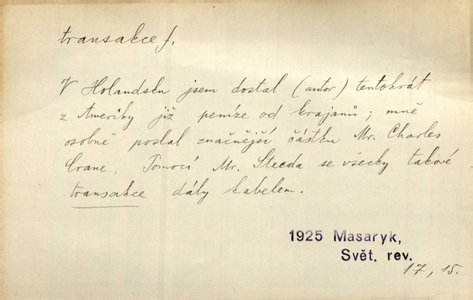 transakce f.
V Holandsku jsem dostal (autor) tentokrát
z Ameriky již peníze od krajanů; mně
osobně poslal značnější částku Mr. Charles
Crane. Pomocí Mr. Steeda se všecky takové
transakce dály kabelem.
1925 Masaryk,
Svět. rev.
17, 15.